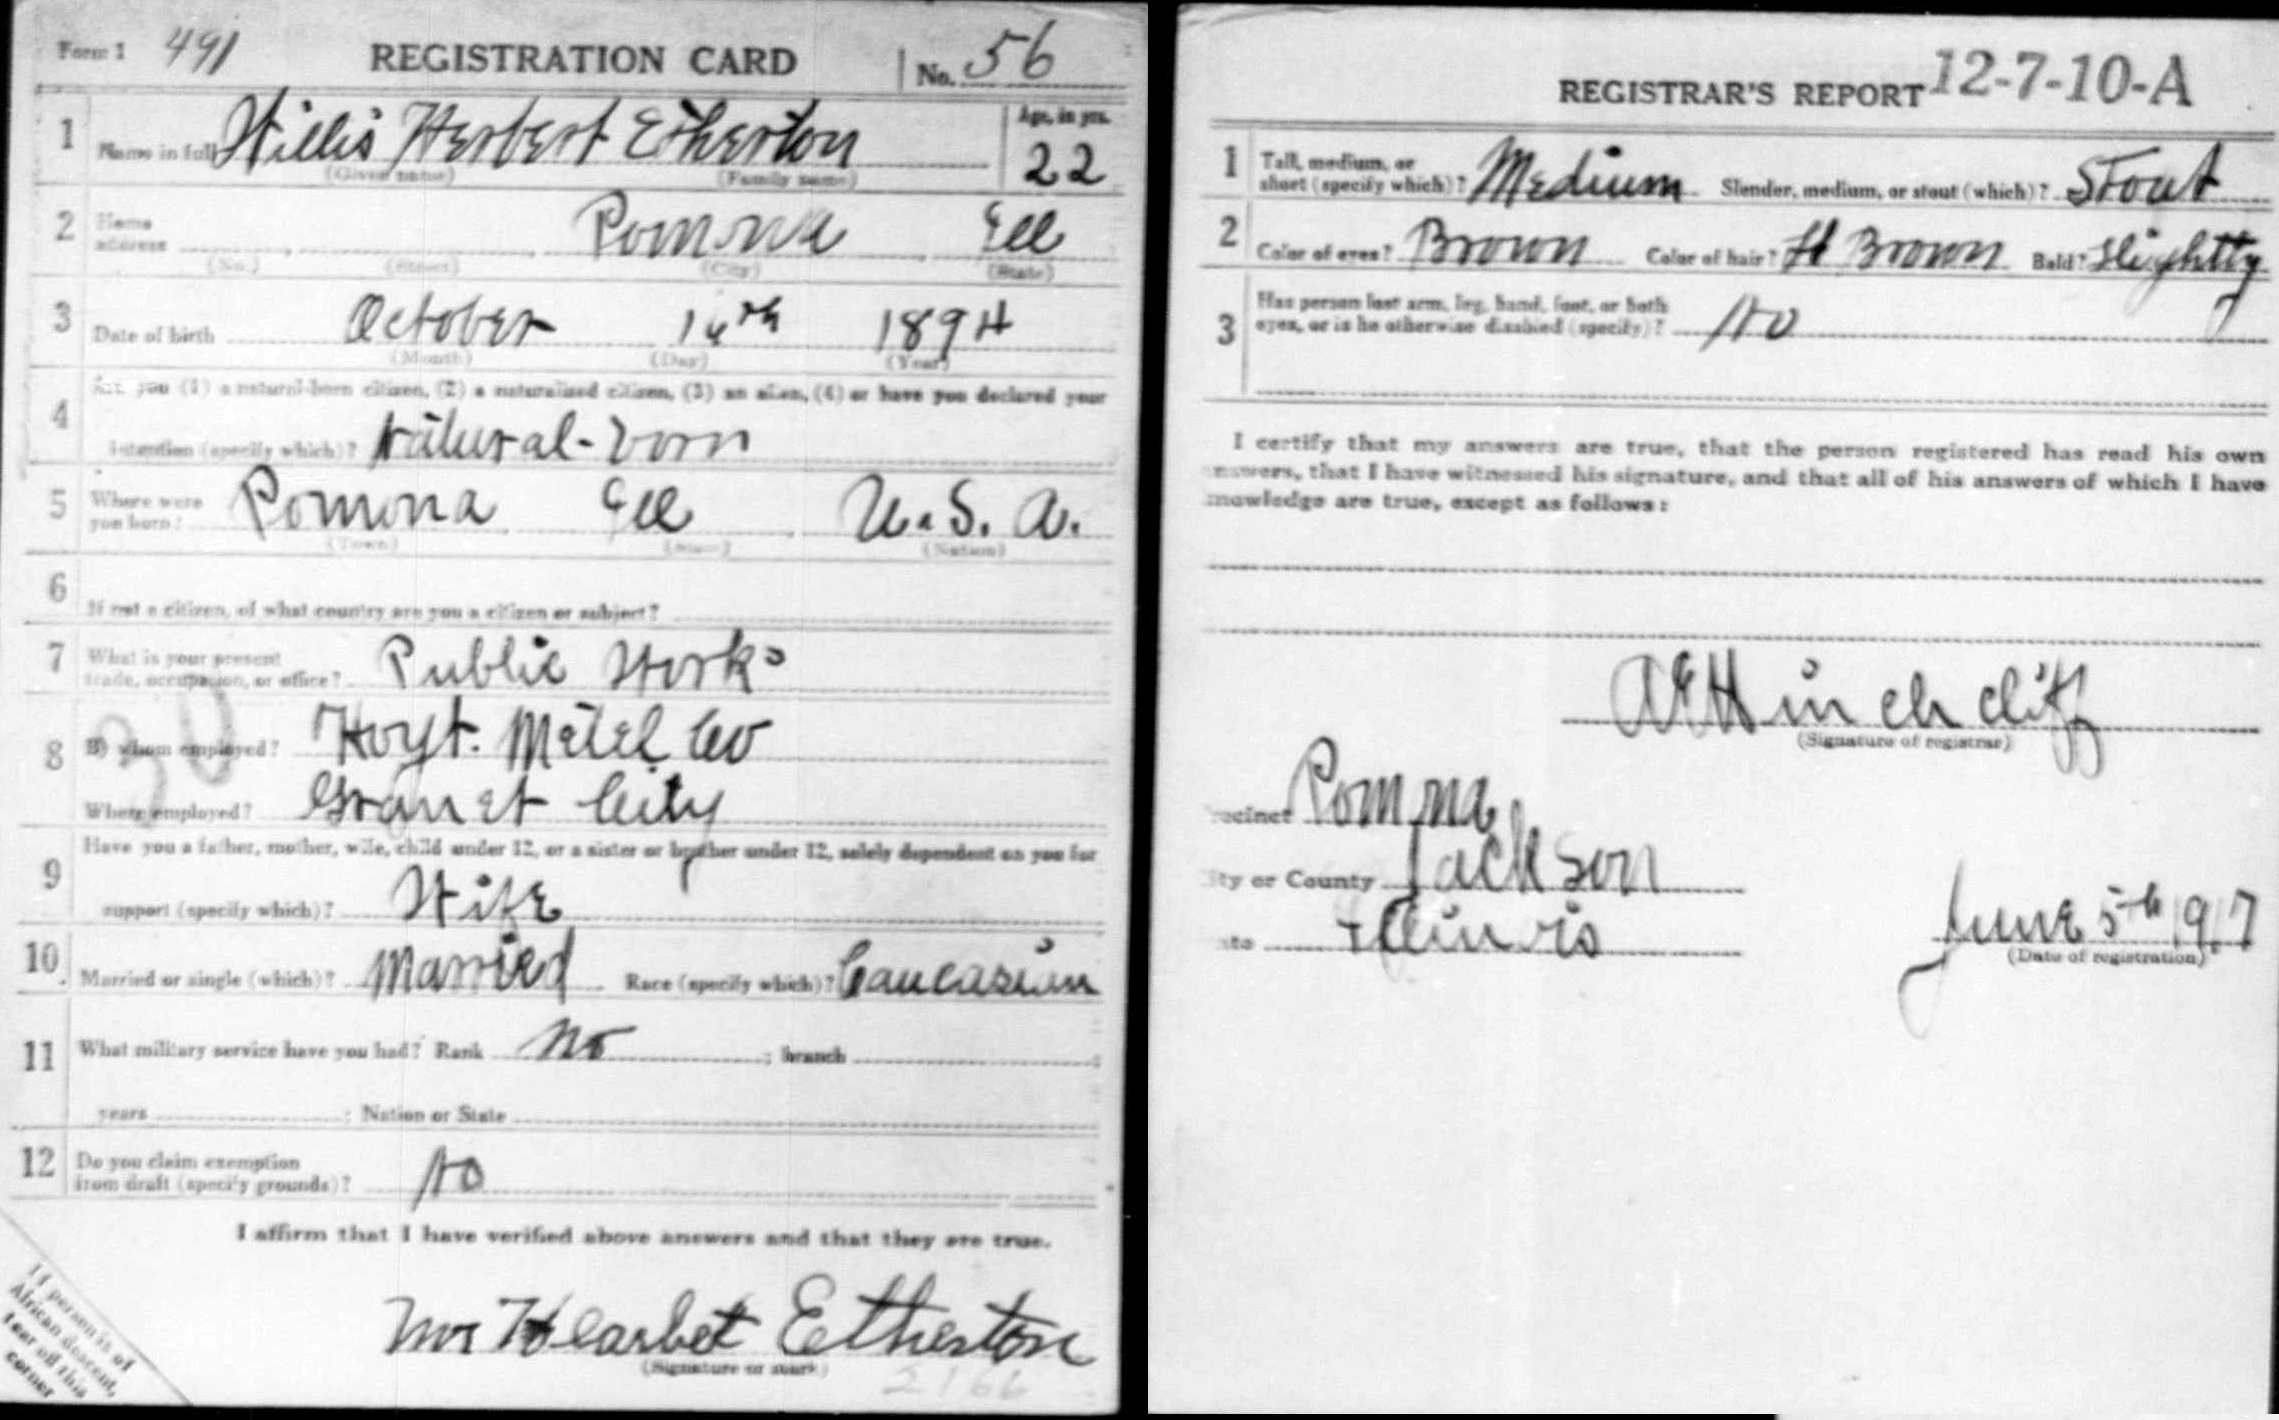 Form 1 491 REGISTRATION CARD No. 56
1 Name in full Willis Herbert Etherton Age, in yrs. 22
(Given name) (Family name)
2 Home address Pomona Ill
(No.) (Street) (City) (State)
3 Date of birth October 16th 1894
(Month) (Day) (Year)
4 Are you (1) a natural-born citizen, (2) a naturalized citizen, (3) an alien, (4) or have you declared your
intention (specify which)? Natural-born
5 Where were you born? Pomona Ill U.S.A.
(Town) (State) (Nation)
6 If not a citizen, of what country are you a citizen or subject?
7 What is your present trade, occupation, or office? Public Works
8 By whom employed? Hoyt. Metel Co
Where employed? Granet City
30
9 Have you a father, mother, wife, child under 12, or a sister or brother under 12, solely dependent on you for
support (specify which)? Wife
10 Married or single (which)? Married Race (specify which)? Caucasian
11 What military service have you had? Rank No ; branch ;
years ; Nation or State
12 Do you claim exemption from draft (specify grounds)? No
I affirm that I have verified above answers and that they are true.
Mr Hearbet Etherton
(Signature or mark)
2166
If person is of
African descent,
tear off this
corner
REGISTRAR'S REPORT 12-7-10-A
1 Tall, medium, or short (specify which)? Medium Slender, medium, or stout (which)? Stout
2 Color of eyes? Brown Color of hair? Brown Bald? Slightty
3 Has person lost arm, leg, hand, foot, or both
eyes, or is he otherwise disabled (specify)? No
I certify that my answers are true, that the person registered has read his own
answers, that I have witnessed his signature, and that all of his answers of which I have
knowledge are true, except as follows:
A E Hinchcliff
(Signature of registrar)
recinct Pomona
ity or County Jackson
ate Illinois
June 5th 1917
(Date of registration)